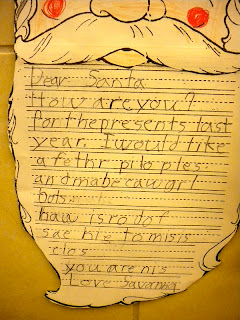 Dear Santa
How are you?
for the presents last
year. I would like
a fethr pilo ples
and mabe cawgirl
bots
haw is rodof
sae hie to misis
clos
you are nis
Love Savanna